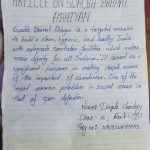 ARTICLE ON SWACHH BHARAT
ABHIYAN
Swachh Bharat Abhiyan is a targeted mission
to build a clean, hygienic, and healthy India
with adequate sanitation facilities, which makes
easy for all Indians. It acted as a
significant purpose in making people aware
of the importance of cleanliness. One of the
most common problems in rural areas is
that of open defecation.
Name:
Class:
Reg no: